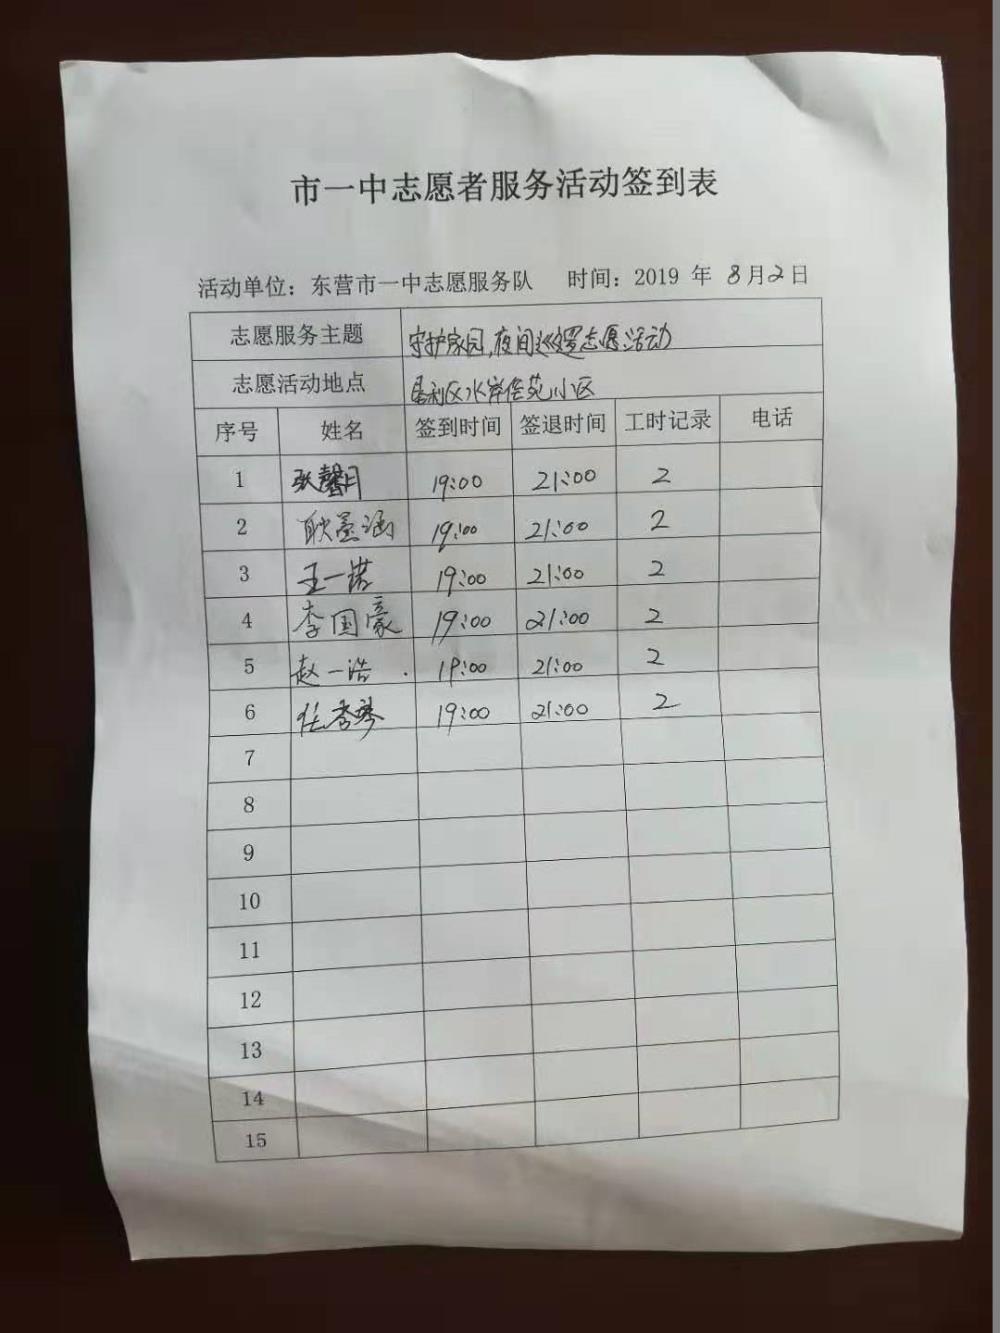 市一中志愿者服务活动签到表
活动单位：东营市一中志愿服务队 时间：2019 年 8月2日
志愿服务主题 守护家园,夜间巡逻志愿活动
志愿活动地点 垦利区水岸佳苑小区
序号 姓名 签到时间 签退时间 工时记录 电话
1 张馨月 19:00 21:00 2
2 耿墨涵 19:00 21:00 2
3 王一诺 19:00 21:00 2
4 李国豪 19:00 21:00 2
5 赵一浩 19:00 21:00 2
6 任秀琴 19:00 21:00 2
7
8
9
10
11
12
13
14
15